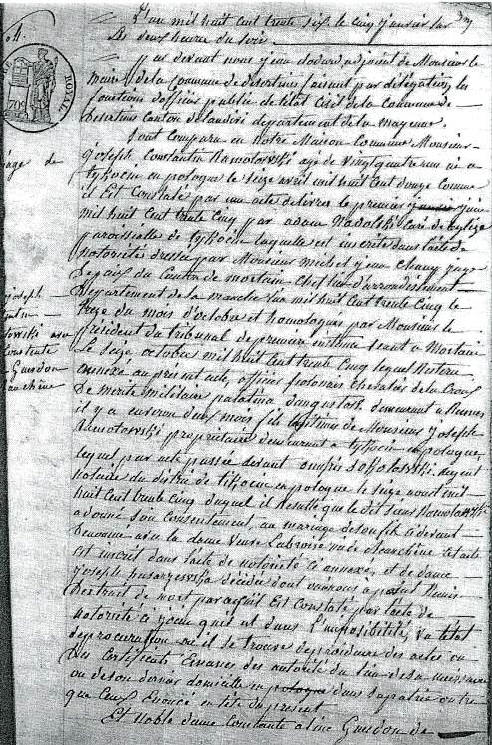 L'an mil huit cent trente six le cinq janvier sur
les deux heure du soir
par devant nous jean adjoint de Monsieur le
maire de la Commune de désertines faisant par délégation les
fonctions d'officier public de l'état civil de la Commune de
désertines Canton de landivi département de la mayenne
Sont Comparu en notre Maison Commune Monsieur
joseph, Constantin Ramotowski age de vingt quatre ans né a
tykocin en pologne le seize avril mil huit cent douze comme
il Est Constaté par un acte délivré le premier juin
mil huit cent trente Cinq par adam Nadolski Curé de l'eglise
paroissialle de tykocin laquelle est inscrite dans l'acte de
notoriété dressé par Monsieur michel jean Chang juge
De paix du Canton de mortain Chef lieu d'arrondissement
Département de la manche l'an mil huit cent trente Cinq le
treize du mois d'octobre et homologués par Monsieur le
président du tribunal de première instance séant a Mortain
Le Seize, octobre mil huit Cent trente Cinq lequel Restera
annexé au présent acte, officier polonais Chevalier de la Croix
De merite militaire demeurant a Rennes
il y a environ deux mois fils légitime de Monsieur joseph
Ramotowski propriétaire demeurant a tykocin en pologne,
lequel par acte passée devant onufri Sokolowski Regent
notaire du district de tikocin en pologne le seize aout mil
huit cent trente Cinq duquel il Resulte que le dit Sieur Ramotowski
a donné son Consentement, au mariage de son fils ci devant
Dénommé avec la dame veuve Labroise née de blanchêne cet acte
est inscrit dans l'acte de notoriété ci annexé, et de dame
joseph décédée dont
D'extrait de mort parcequ'il Est Constaté par l'acte de
notoriété ci joint qu'il est dans L'impossibilité, vu l'état
de proscription ou il se trouve de produire des actes ou
Des Certificats Emanés des autorité du lieu de sa naissance
ou de son dernier domicille en pologne dans sa patrie outre
que Ceux Enoncé en tête du present
Et noble dame Constante aline Guesdon de
ROYALE
iage de
joseph
Constante
Guesdon